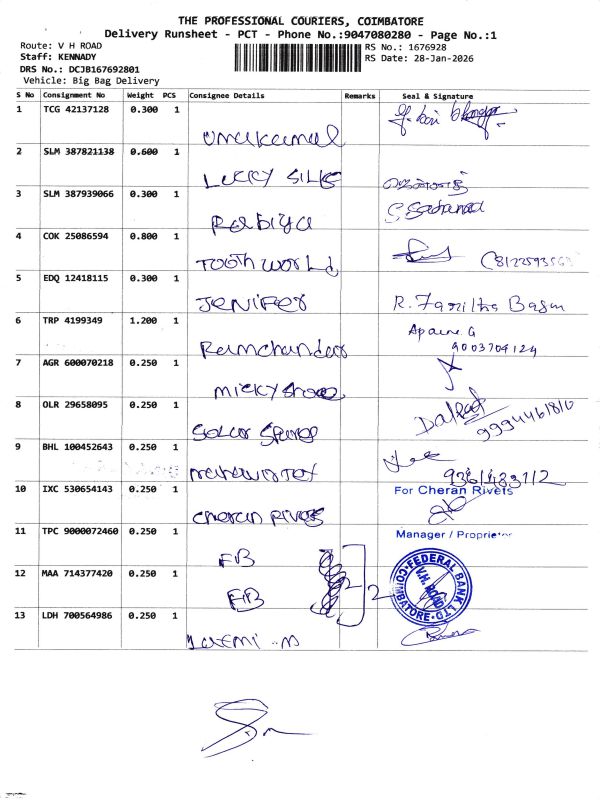 THE PROFESSIONAL COURIERS, COIMBATORE
Delivery Runsheet - PCT - Phone No.:9047080280 - Page No.:1
Route: V H ROAD
Staff: KENNADY
DRS No.: DCJB167692801
Vehicle: Big Bag Delivery
RS No.: 1676928
RS Date: 28-Jan-2026
S No Consignment No Weight PCS Consignee Details Remarks Seal & Signature
1 TCG 42137128 0.300 1
umakamal
2 SLM 387821138 0.600 1
LUCKY SILKS
3 SLM 387939066 0.300 1
Rabiya
4 COK 25086594 0.800 1
TOOTH WORLD
5 EDQ 12418115 0.300 1
JENIFER R.
6 TRP 4199349 1.200 1
Ramchandar
9003704124
7 AGR 600070218 0.250 1
MICKY shoes
8 OLR 29658095 0.250 1
Solar Dalpat
9994461810
9 BHL 100452643 0.250 1
9361483112
10 IXC 530654143 0.250 1
cheran rivets
For Cheran Rivets
Manager / Proprietor
11 TPC 9000072460 0.250 1
FB
12 MAA 714377420 0.250 1
FB 2
FEDERAL BANK LTD
V.H. ROAD
COIMBATORE
13 LDH 700564986 0.250 1